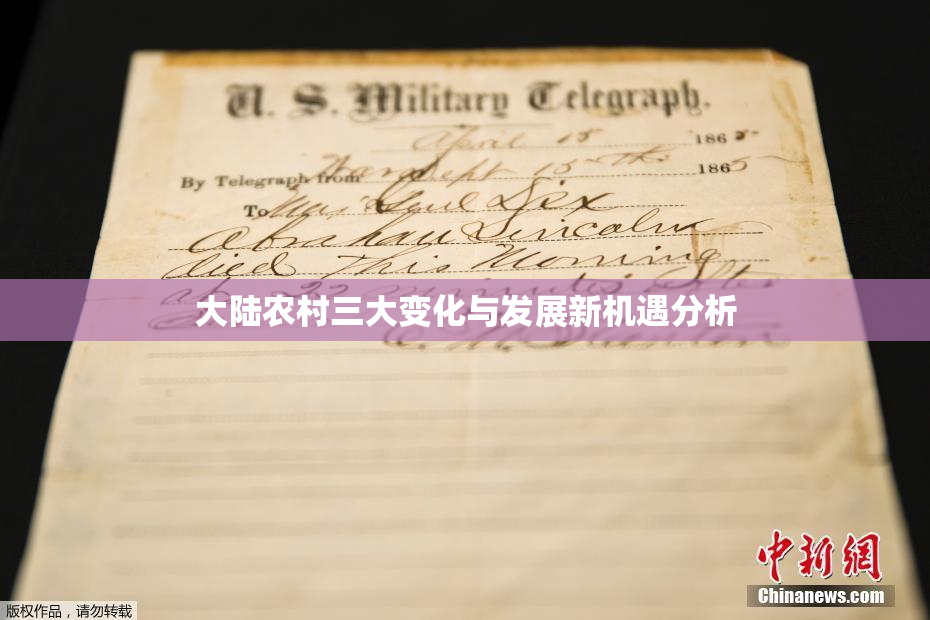 U. S. Military Telegraph.
April 15 1865
By Telegraph from War Dept 15th 1865
To Maj Genl Dix
Abraham Lincoln
died This Morning
at 22 minutes after
大陆农村三大变化与发展新机遇分析
E. M. Stanton
中新网
Chinanews.com
版权作品，请勿转载